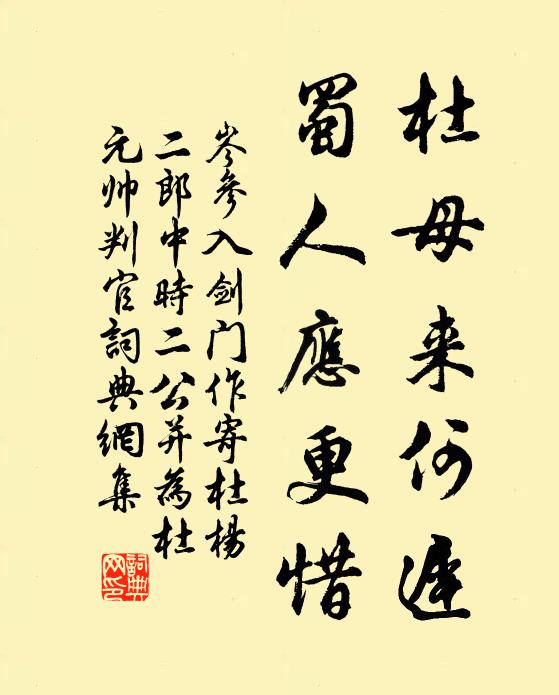 杜母来何遲
蜀人應更惜
岑參入劍门作寄杜楊
二郎中時二公并為杜
元帅判官詞典網集
詞典網印